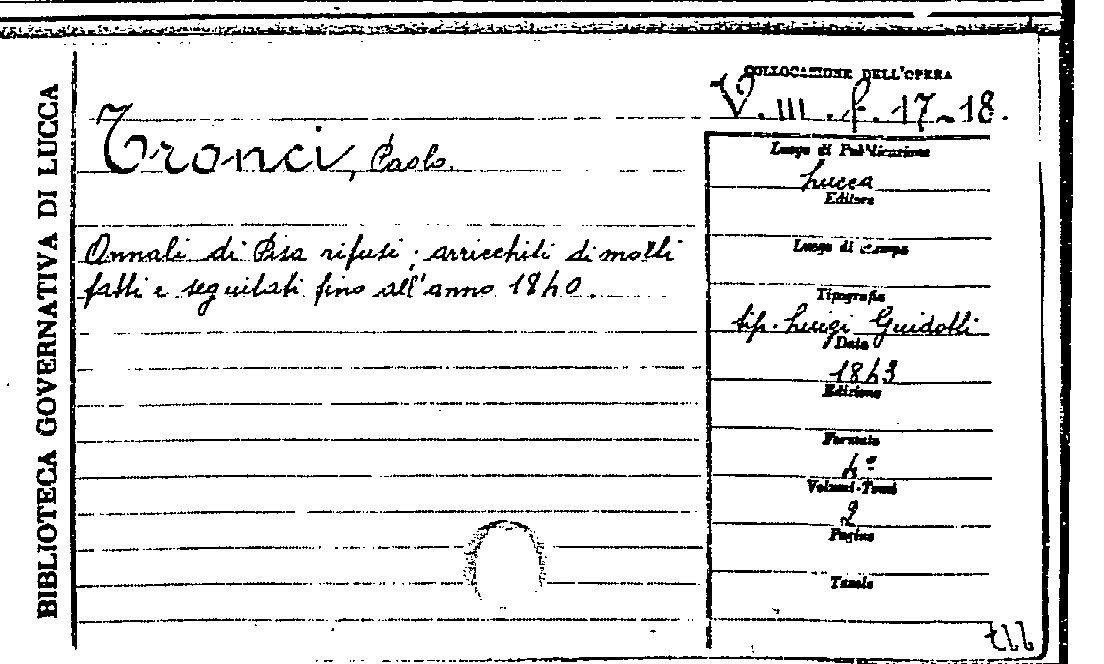 BIBLIOTECA GOVERNATIVA DI LUCCA
Tronci, Paolo.
Annali di Pisa rifusi, arricchiti di molti
fatti e seguitati fino all'anno 1840.
COLLOCAZIONE DELL'OPERA
V. III. f. 17-18.
Luogo di Pubblicazione
Lucca
Editore
Luogo di stampa
Tipografia
tip. Luigi Guidotti
Data
1843
Edizione
Formato
4°
Volumi-Tomi
2
Pagine
Tavole